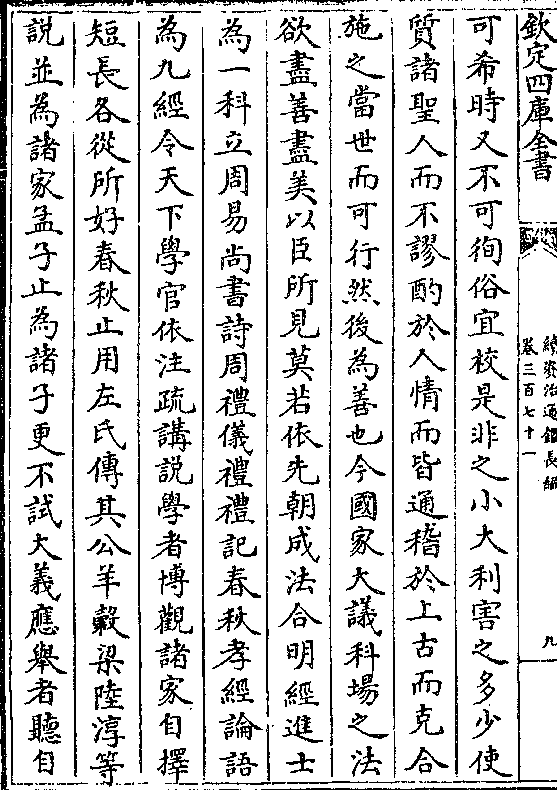 欽定四庫全書
續資治通鑑長編
卷三百七十一
九
可希時又不可徇俗宜校是非之小大利害之多少使
質諸聖人而不謬酌於人情而皆通稽於上古而克合
施之當世而可行然後為善也今國家大議科場之法
欲盡善盡美以臣所見莫若依先朝成法合明經進士
為一科立周易尚書詩周禮儀禮禮記春秋孝經論語
為九經令天下學官依注疏講説學者博觀諸家自擇
短長各從所好春秋止用左氏傳其公羊穀梁陸淳等
説並為諸家孟子止為諸子更不試大義應舉者聽自